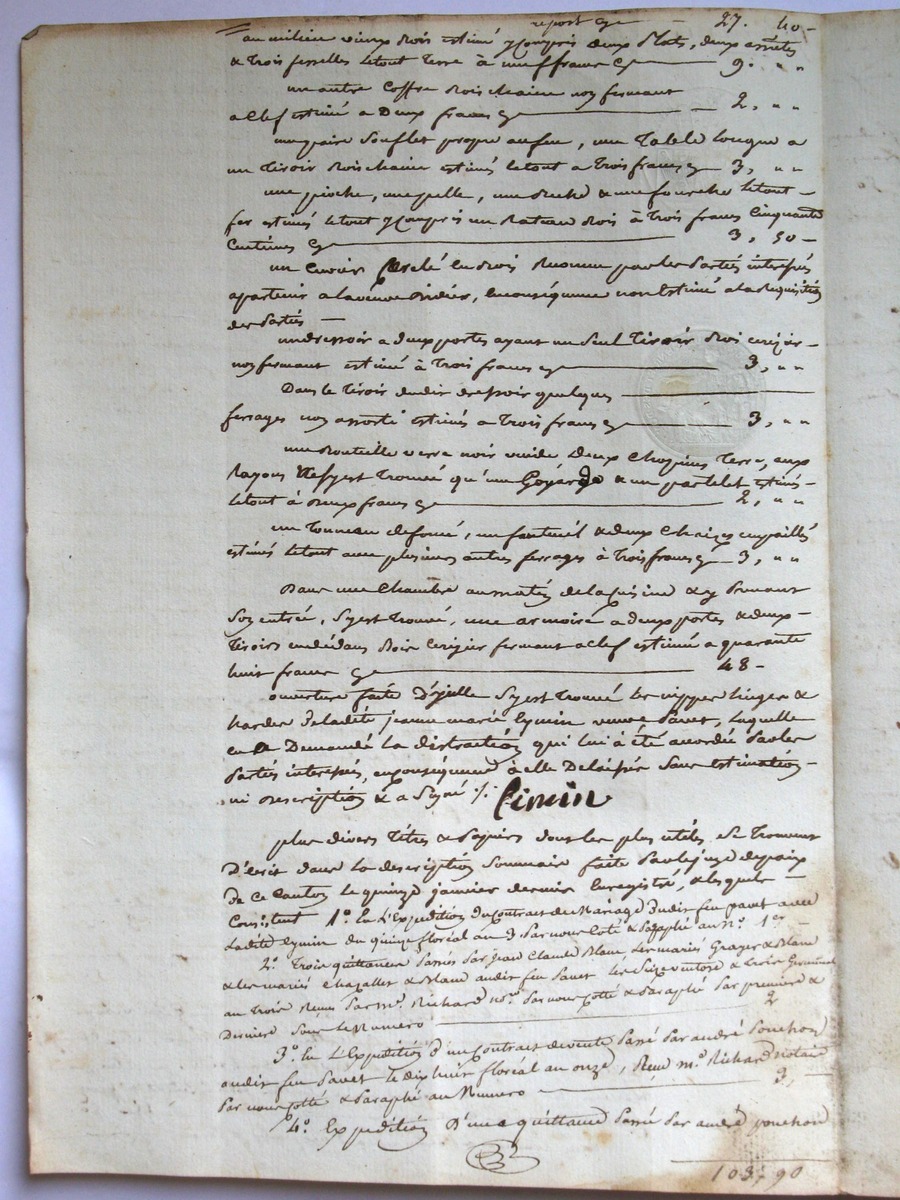 report — 27. 40-
au milieu vieux bois estimé y compris deux Plats, deux assiètes
& Trois fesselles le tout Terre à neuf francs — 9. " "
un autre Coffre Bois chaine non fermant
a Clef estimé a Deux francs — 2, " "
une paire Souflet propre au feu, une Table longue a
un Tiroir Bois chaine estimés le tout a Trois francs 3, " "
une pioche, une pelle, une Beche & une fourche le tout -
fer estimés le tout y compris un Rateau Bois à Trois francs Cinquante
Centimes — 3, 50 -
un Cuvier Cerclé en Bois Reconnu par les Parties interessés
apartenir a la veuve , en conséquence non Estimé a la Requisition
des Parties —
un dressoir a deux portes ayant un Seul Tiroir Bois cerizier -
non fermant estimé à Trois francs — 3, " "
Dans le Tiroir dudit dressoir quelques —
ferrages non assorti estimés a Trois francs — 3, " "
une Bouteille verre noir vuide Deux Chopines Terre, aux
Rayons il s'y est Trouvé qu'une Goyarde & un estimés -
le tout à deux francs — 2, " "
un Tonneau defoncé, un fauteuil & deux Chaizes empaillés
estimés le tout avec plusieurs autres ferrages à Trois francs 3, " "
Dans une Chambre au matin de la Cuisine & y Prenant
Son entrée, S'y est Trouvé, une armoire a deux portes & deux -
Tiroirs en dédans Bois Cerizier fermant a Clef estimé a quarante
huit francs — 48 -
ouverture faite D'ycelle S'y est Trouvé les nippes linges &
hardes de ladite jeanne marie Eymin veuve Pavet, laquelle
en a Demandé la distraction qui lui à été accordée Par les
Parties interessés, en conséquence à elle Delaissés Sans estimation -
ni description & a Signé ./.
Eimin
plus divers Titres & Papiers dont les plus utiles, Se Trouvent
D'écrit dans la description Sommaire faite Par le juge de paix
de Ce Canton le quinze janvier dernier Enregistré, & lesquels —
Consistent 1.° En L'Expedition du Contrat de Mariage dudit feu pavet avec
Ladite Eymin du quinze floréal an 3 Par nous Coté & Paraphé au N.° 1.er -
2.° Trois quittances Passés Par Jean Claude Blanc, les mariés Grazer & Blanc
& les mariés Chazallet & Blanc audit feu Pavet les Six ventose & Treize Germinal
an Troix Reçus Par M.e Richard no.re Par nous Cotté & Paraphé Par premiere &
Derniere Sous le Numero — 2
3.° En L'Expedition d'un Contrat de vente Passé Par andré Ponchon
audit feu Pavet le dix huit floréal an onze, Reçu M.e Richard Notaire
Par nous Cotté & Paraphé au Numero — 3, —
4.° Expedition D'une quittance Passé Par andré ponchon
103, 90